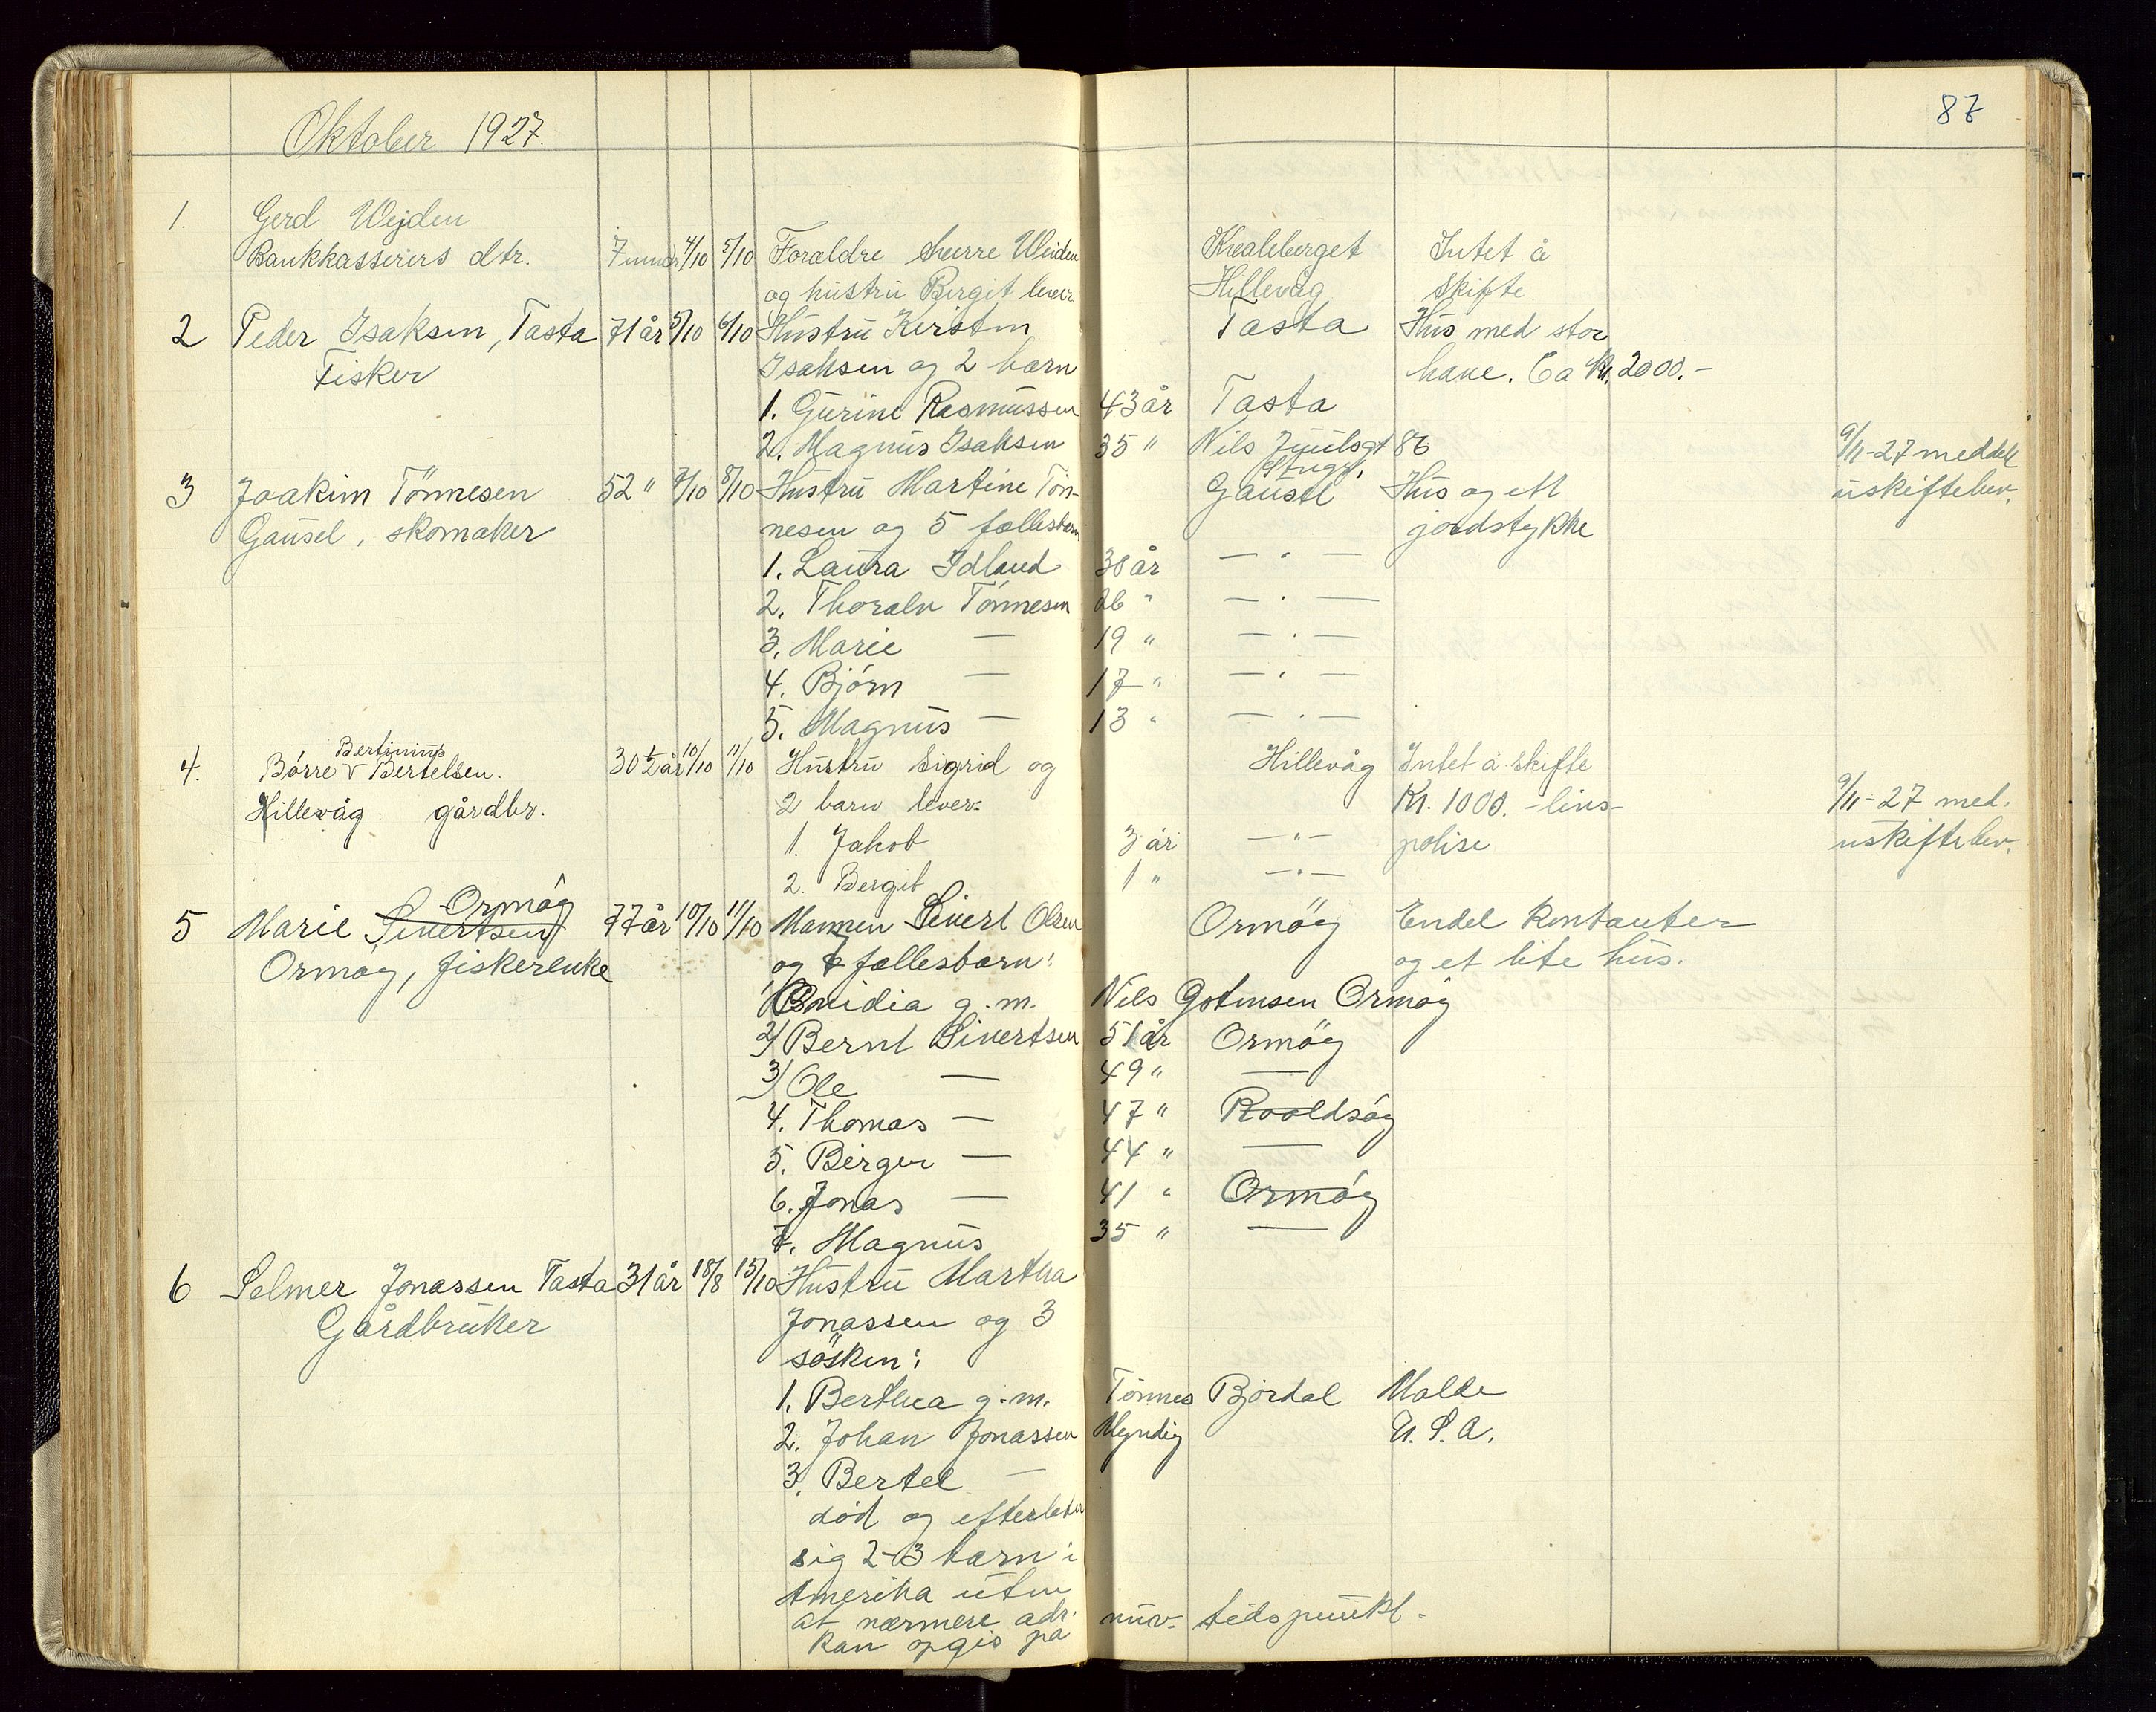 87
Oktober 1927.
1. Gerd Weiden
Bankkasserers dtr. 7 4/10 5/10 Foraldre herre Weiden Kvaleberget Intet å
og hustru Birgit lever Hillevåg skifte
2 Peder Isaksen, Tasta 71 år 5/10 6/10 Hustru Kirsten Tasta Hus med stor
Fisker Isaksen og 2 barn have. Ca kr. 2000.-
1. Gurine Rasmussen 43 år Tasta
2. Magnus Isaksen 35 " Nils Juulsgt 86 9/11-27 meddelt
3 Joakim Tönnesen 52 " 7/10 8/10 Hustru Martine Tön- Gausel Hus og ett uskiftebev.
Gausel, skomaker nesen og 5 fællesbarn jordstykke
1. Laura Idland 30 år — " —
2. Thoralv Tönnesen 26 " — " —
3. Marie — 19 " — " —
4. Björn — 17 " — " —
5. Magnus — 13 " — " —
Bertinius
4. Börre V Bertelsen. 30 1/2 år 10/10 11/10 Hustru Sigrid og Hillevåg Intet å skifte
Hillevåg gårdbr. 2 barn lever: Kr. 1000.- livs- 9/11-27 med.
1. Jakob 3 år — " — polise uskiftebev.
2. Bergit 1 " — " —
Ormöy
5 Marie Sivertsen 77 år 10/10 11/10 Mannen Sivert Olsen Ormöy Endel kontanter
Ormöy, fiskerenke og 7 fællesbarn: og et lite hus.
1) g.m. Nils Gotensen Ormöy
2) Bernt Sivertsen 51 år Ormöy
3) Ole — 49 " —
4. Thomas — 47 " Roaldsöy
5. Birger — 44 " —
6. Jonas — 41 " Ormöy
7. Magnus 35 " —
6 Selmer Jonassen Tasta 31 år 18/8 15/10 Hustru Martha
Gårdbruker Jonassen og 3
sösken:
1. Berthea g.m. Tönnes Björdal Malde
2. Johan Jonassen Myndig U.S.A.
3. Bertel —
död og efterlater
sig 2-3 barn i
Amerika uten
at nærmere adr. nuv. tidspunkt.
kan opgis på